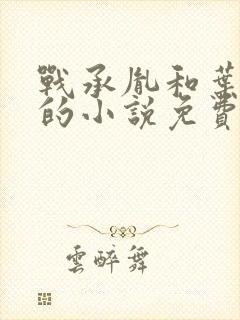 戰承胤和葉
的小說免費
雲醉舞